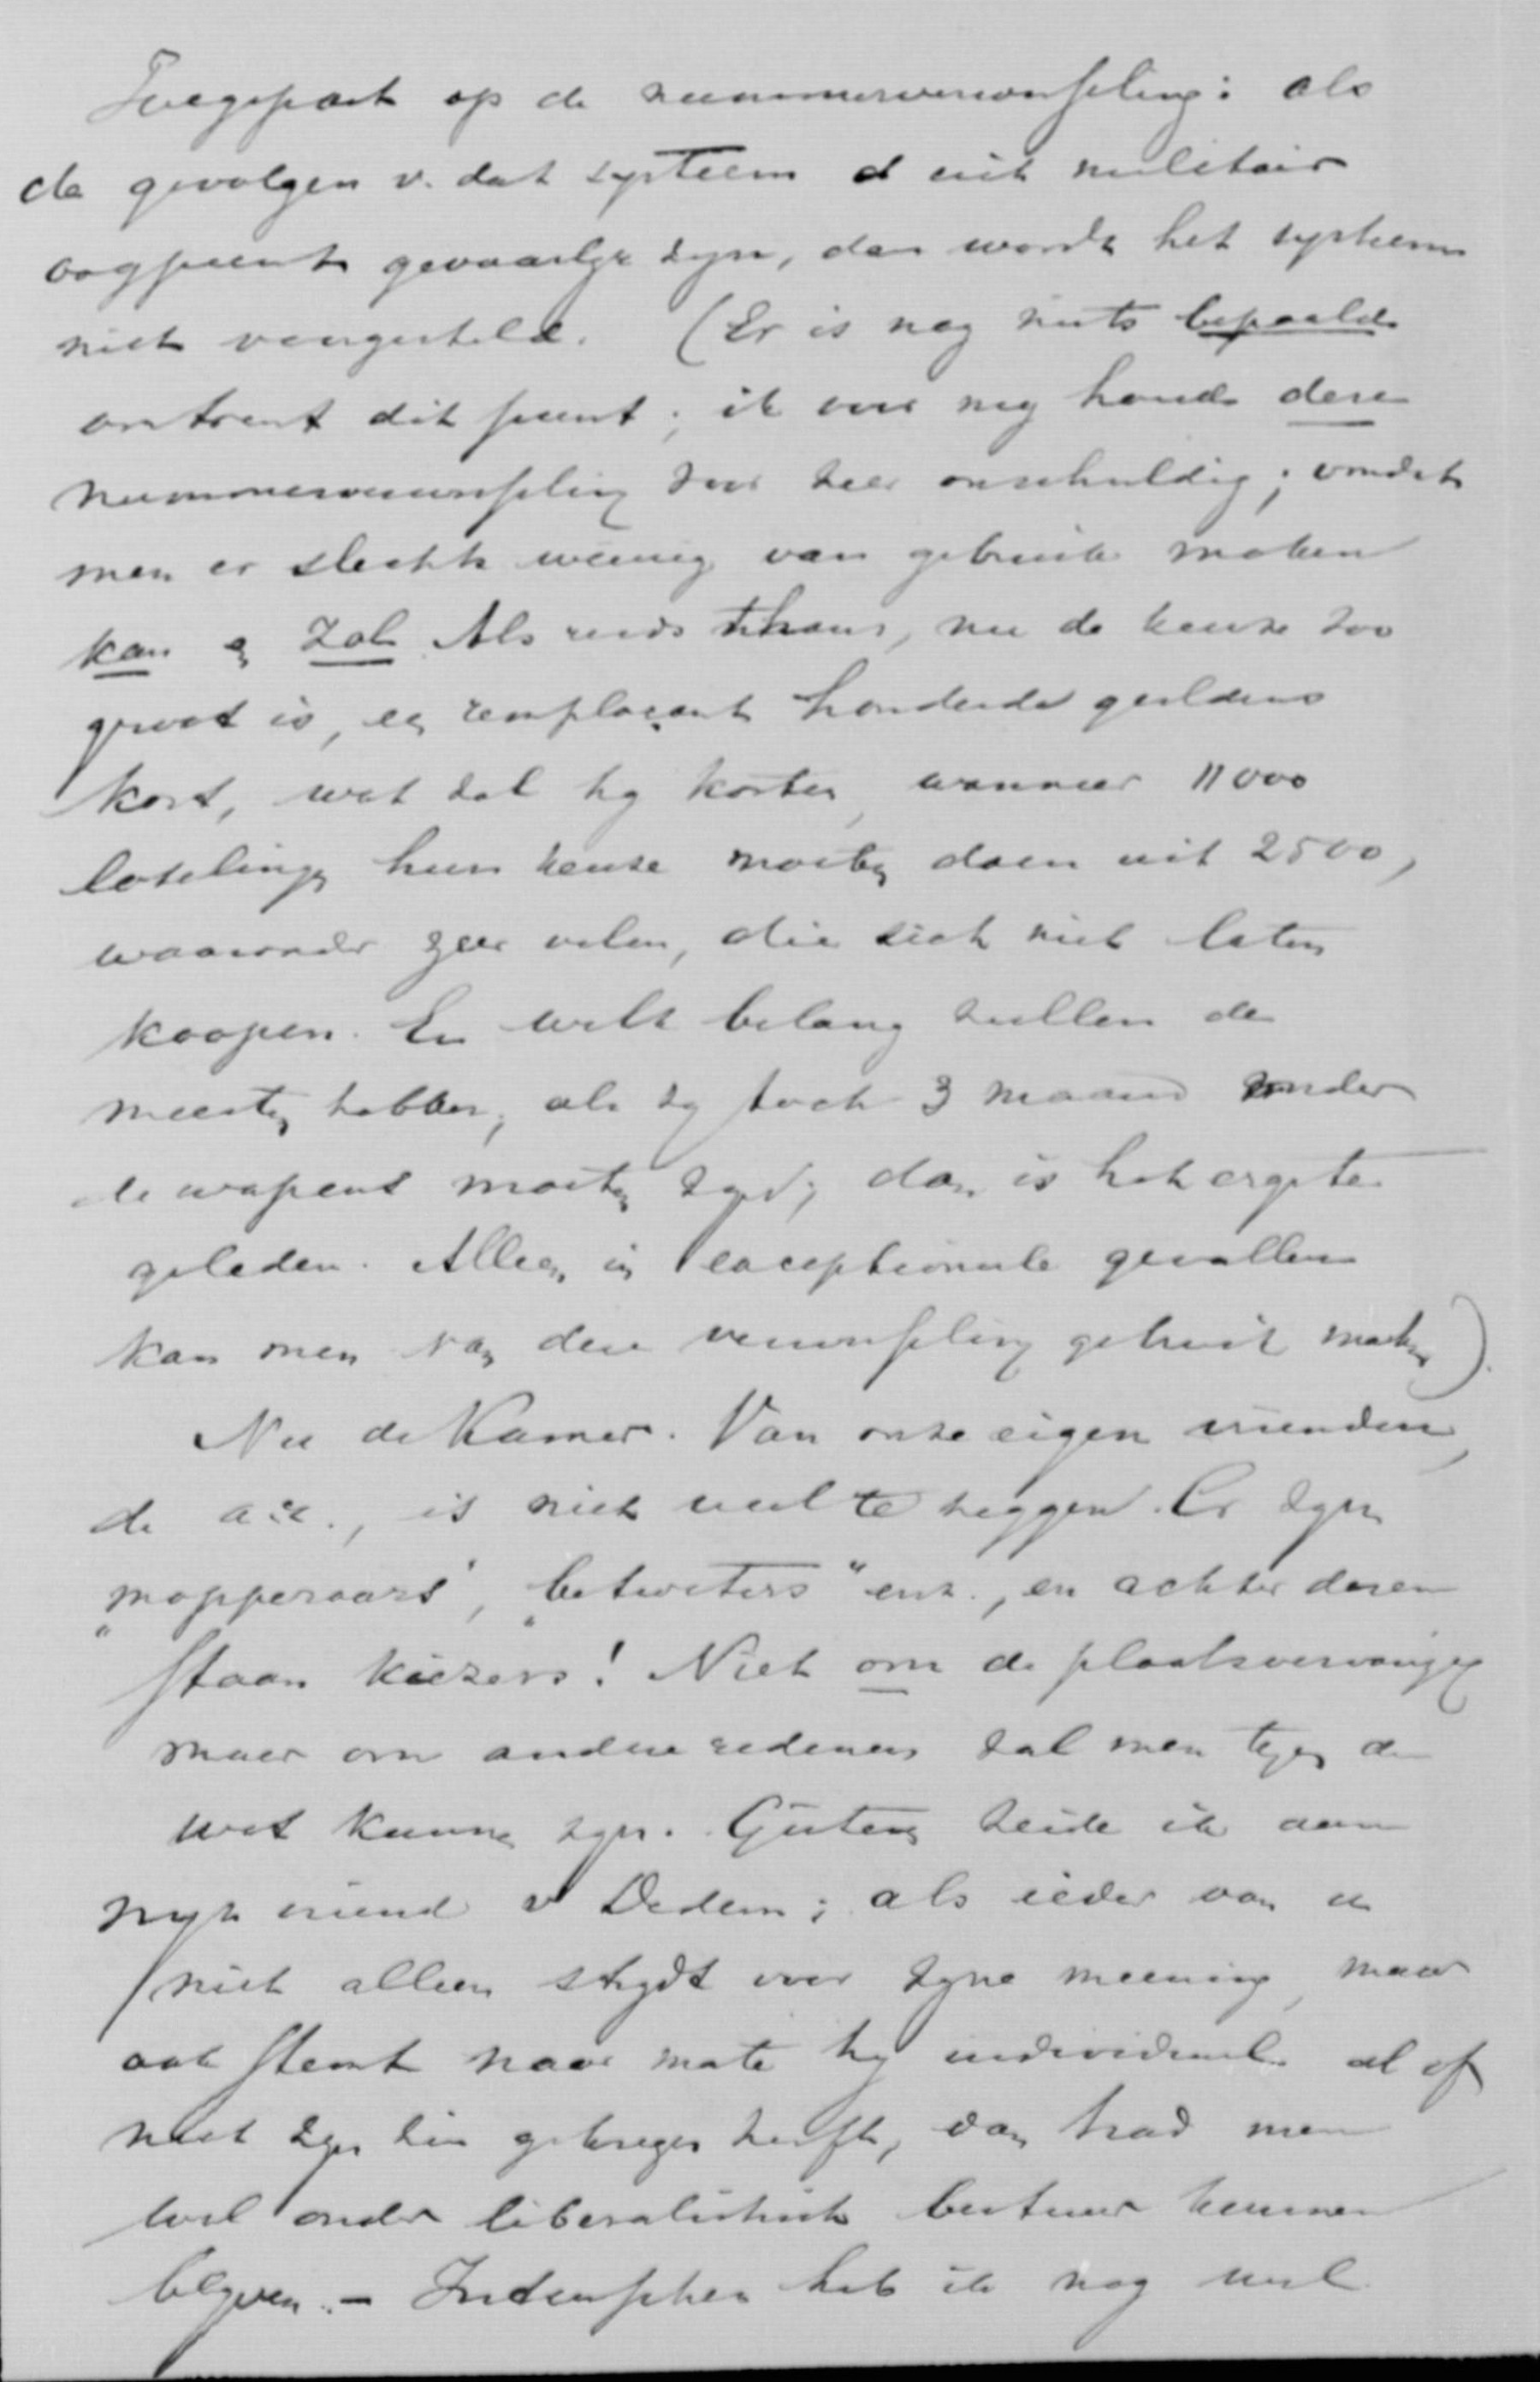 Toegepast op de nummerverwisseling: als
de gevolgen v. dat systeem uit militair
oogpunt gevaarlijk zijn, dan wordt het systeem
niet voorgesteld. (Er is nog niets bepaalds
omtrent dit punt; ik voor mij houde deze
nummerverwisseling voor zeer onschuldig; omdat
men er slechts weinig van gebruik maken
kan en zal. Als reeds thans, nu de keuze zoo
groot is, een remplaçant honderde guldens
kost, wat zal hij kosten, wanneer 11000
lotelingen hun keuze moeten doen uit 2500,
waaronder zeer velen, die zich niet laten
koopen. En welk belang zullen de
meesten hebben, als zij toch 3 maand onder
de wapens moeten zijn; dan is het ergste
geleden. Alleen in exceptioneele gevallen
kan men van deze verwisseling gebruik maken).
Nu de Kamer. Van onze eigen vrienden,
de a.r., is niet veel te zeggen. Er zijn
"mopperaars", "betweters" enz., en achter dezen
staan kiezers! Niet om de plaatsvervanging
maar om andere redenen zal men tegen de
wet kunnen zijn. Gisteren zeide ik aan
mijn vriend v Dedem; als ieder van u
niet alleen strijdt over zijne meening, maar
ook stemt naar mate hij individueel al of
niet zijn zin gekregen heeft, dan had men
wel onder liberalistisch bestuur kunnen
blijven. - Intusschen heb ik nog veel